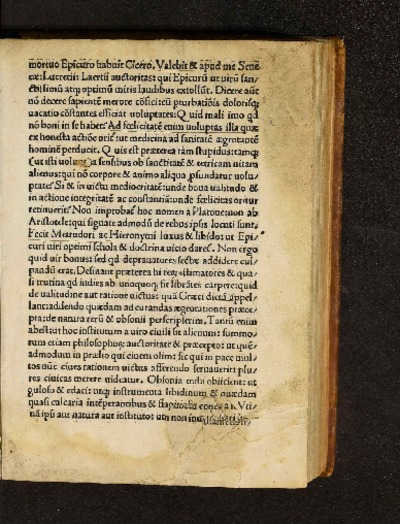 mortuo Epicuro habuit Cicero. Valebit & apud me Sene
cæ: Lucretii: Laertii auctoritas: qui Epicurū ut virū san/
ctissimū atq; optimū miris laudibus extollūt. Dicere aūt
nō decere sapientē merore cōfici: cū pturbatiōis dolorisq;
vacatio cōstantes efficiat voluptates: Quid mali imo qd
nō boni in se habet? Ad fœlicitatē enim voluptas illa quæ
ex honesta actiōe orit: ut medicina ad sanitatē ægrotantē
hominē perducit. Quis est præterea tam stupidus: tamq;
sensibus ob sanctitatē & tetricam vitam
alienus: qui nō corpore & animo aliqua pfundatur volu/
ptate? Si & in victu mediocritatē: unde bona valitudo &
in actione integritatē ac constantiā: unde fœlicitas oritur
retinuerit? Non improbat hoc nomen a Platone: non ab
Aristotele: qui siguate admodū de rebus ipsis locuti sunt.
Fecit Metrodori ac Hieronymi luxus & libido: ut Epi/
curi viri optimi schola & doctrina vicio daret. Non ergo
quid vir bonus: sed qd depravatores sectæ addidere cul/
pandū erat. Desinant præterea hi rerū estimatores & qua/
si trutina qd audies ab unoquoq; sit librātes carpere: quid
de valitudine aut ratione victus: quā Græci dictā appel/
lant: addendo quædam ad curandas ægrotationes præce/
pta: de natura rerū & obsonii perscripserim. Tantū enim
abest: ut hoc institutum a viro civili sit alienum: summo/
rum etiam philosophoꝝ auctoritate & præcepto: ut quē/
admodum in prælio qui civem olim: sic qui in pace mul/
tos nūc cives rationem victus afferendo servaverit: plu/
res civicas merere videatur. Obsonia mihi obiiciunt: ut
guloso & edaci: utq; instrumenta libidinum & quædam
quasi calcaria intēperantibus &
nā ipsi aut natura aut instituto: utn non